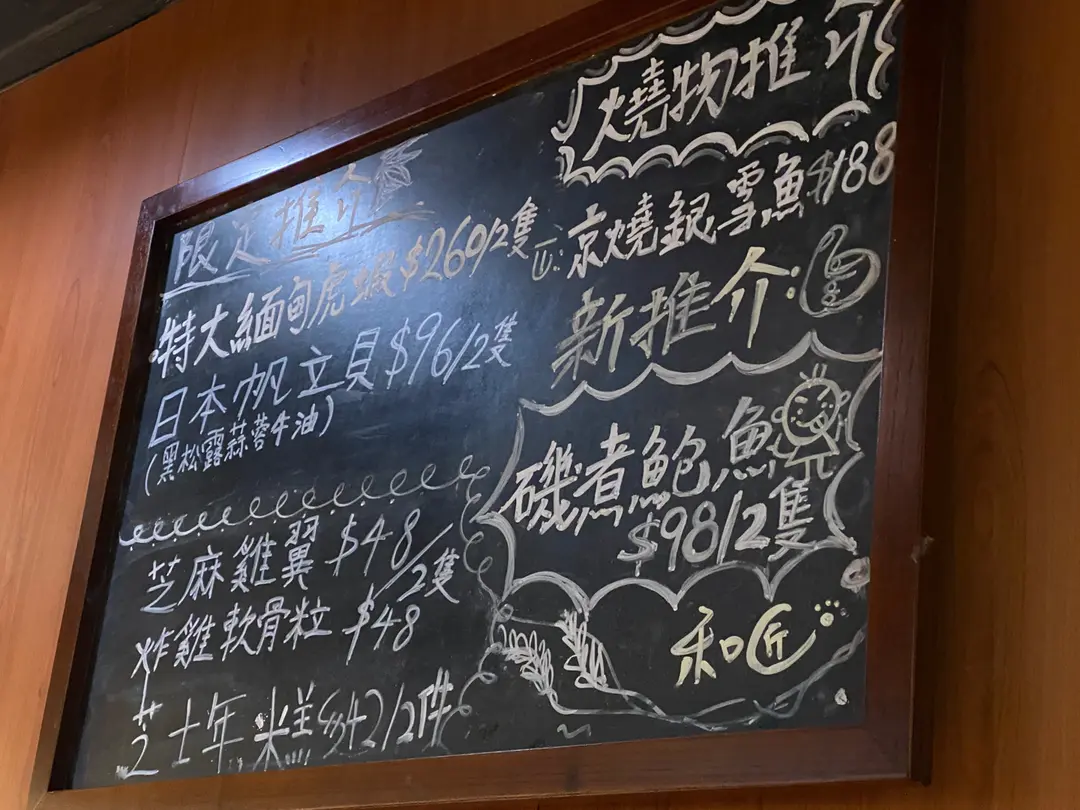 限定推介
特大緬甸虎蝦$269/2隻
日本帆立貝$96/2隻
(黑松露蒜蓉牛油)
芝麻雞翼$48/2隻
炸雞軟骨粒 $48
芝士年糕$42/2件
燒物推介
京燒銀雪魚$188
新推介:
磯煮鮑魚
$98/2隻
和匠